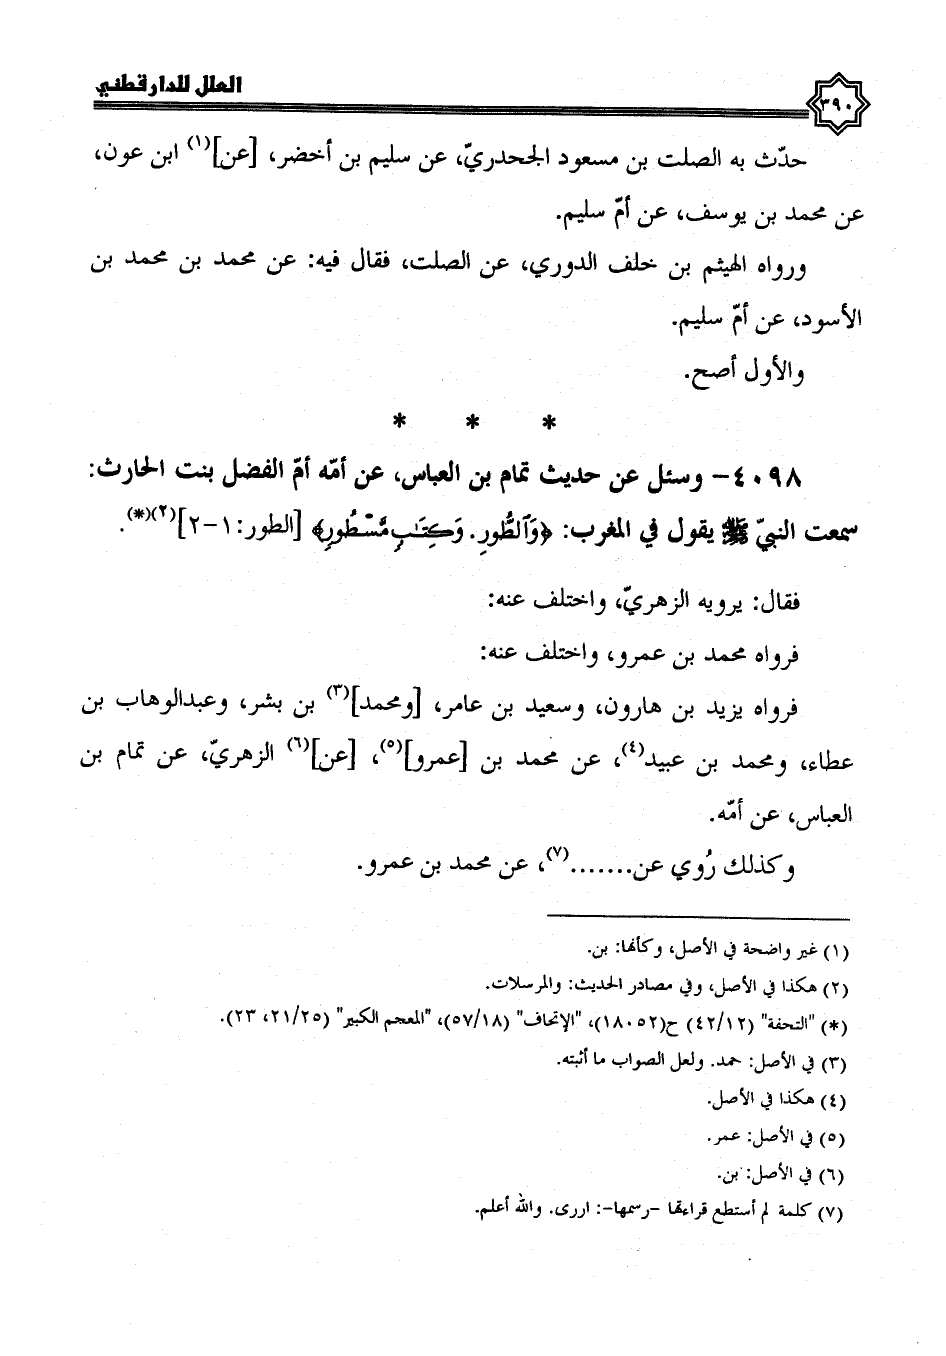 العلل للدارقطني
٣٩٠
حدّث به الصلت بن مسعود الجحدريّ، عن سليم بن أخضر، [عن](١) ابن عون،
عن محمد بن يوسف، عن أمّ سليم.
ورواه الهيثم بن خلف الدوري، عن الصلت، فقال فيه: عن محمد بن محمد بن
الأسود، عن أمّ سليم.
والأول أصح.
* * *
٤٠٩٨- وسئل عن حديث تمام بن العباس، عن أمّه أمّ الفضل بنت الحارث:
سمعت النبيّ ﷺ يقول في المغرب: ﴿وَٱلطُّورِ. وَكِتَٰبٍ مَّسْطُورٍ﴾ [الطور: ١-٢](٢)(*).
فقال: يرويه الزهريّ، واختلف عنه:
فرواه محمد بن عمرو، واختلف عنه:
فرواه يزيد بن هارون، وسعيد بن عامر، [ومحمد](٣) بن بشر، وعبدالوهاب بن
عطاء، ومحمد بن عبيد(٤)، عن محمد بن [عمرو](٥)، [عن](٦) الزهريّ، عن تمام بن
العباس، عن أمّه.
وكذلك رُوي عن.......(٧)، عن محمد بن عمرو.
(١) غير واضحة في الأصل، وكأنها: بن.
(٢) هكذا في الأصل، وفي مصادر الحديث: والمرسلات.
(*) "التحفة" (٤٢/١٢) ح(١٨٠٥٢)، "الإتحاف" (٥٧/١٨)، "المعجم الكبير" (٢١/٢٥، ٢٣).
(٣) في الأصل: حمد. ولعل الصواب ما أثبته.
(٤) هكذا في الأصل.
(٥) في الأصل: عمر.
(٦) في الأصل: بن.
(٧) كلمة لم أستطع قراءتها -رسمها-: اررى. والله أعلم.